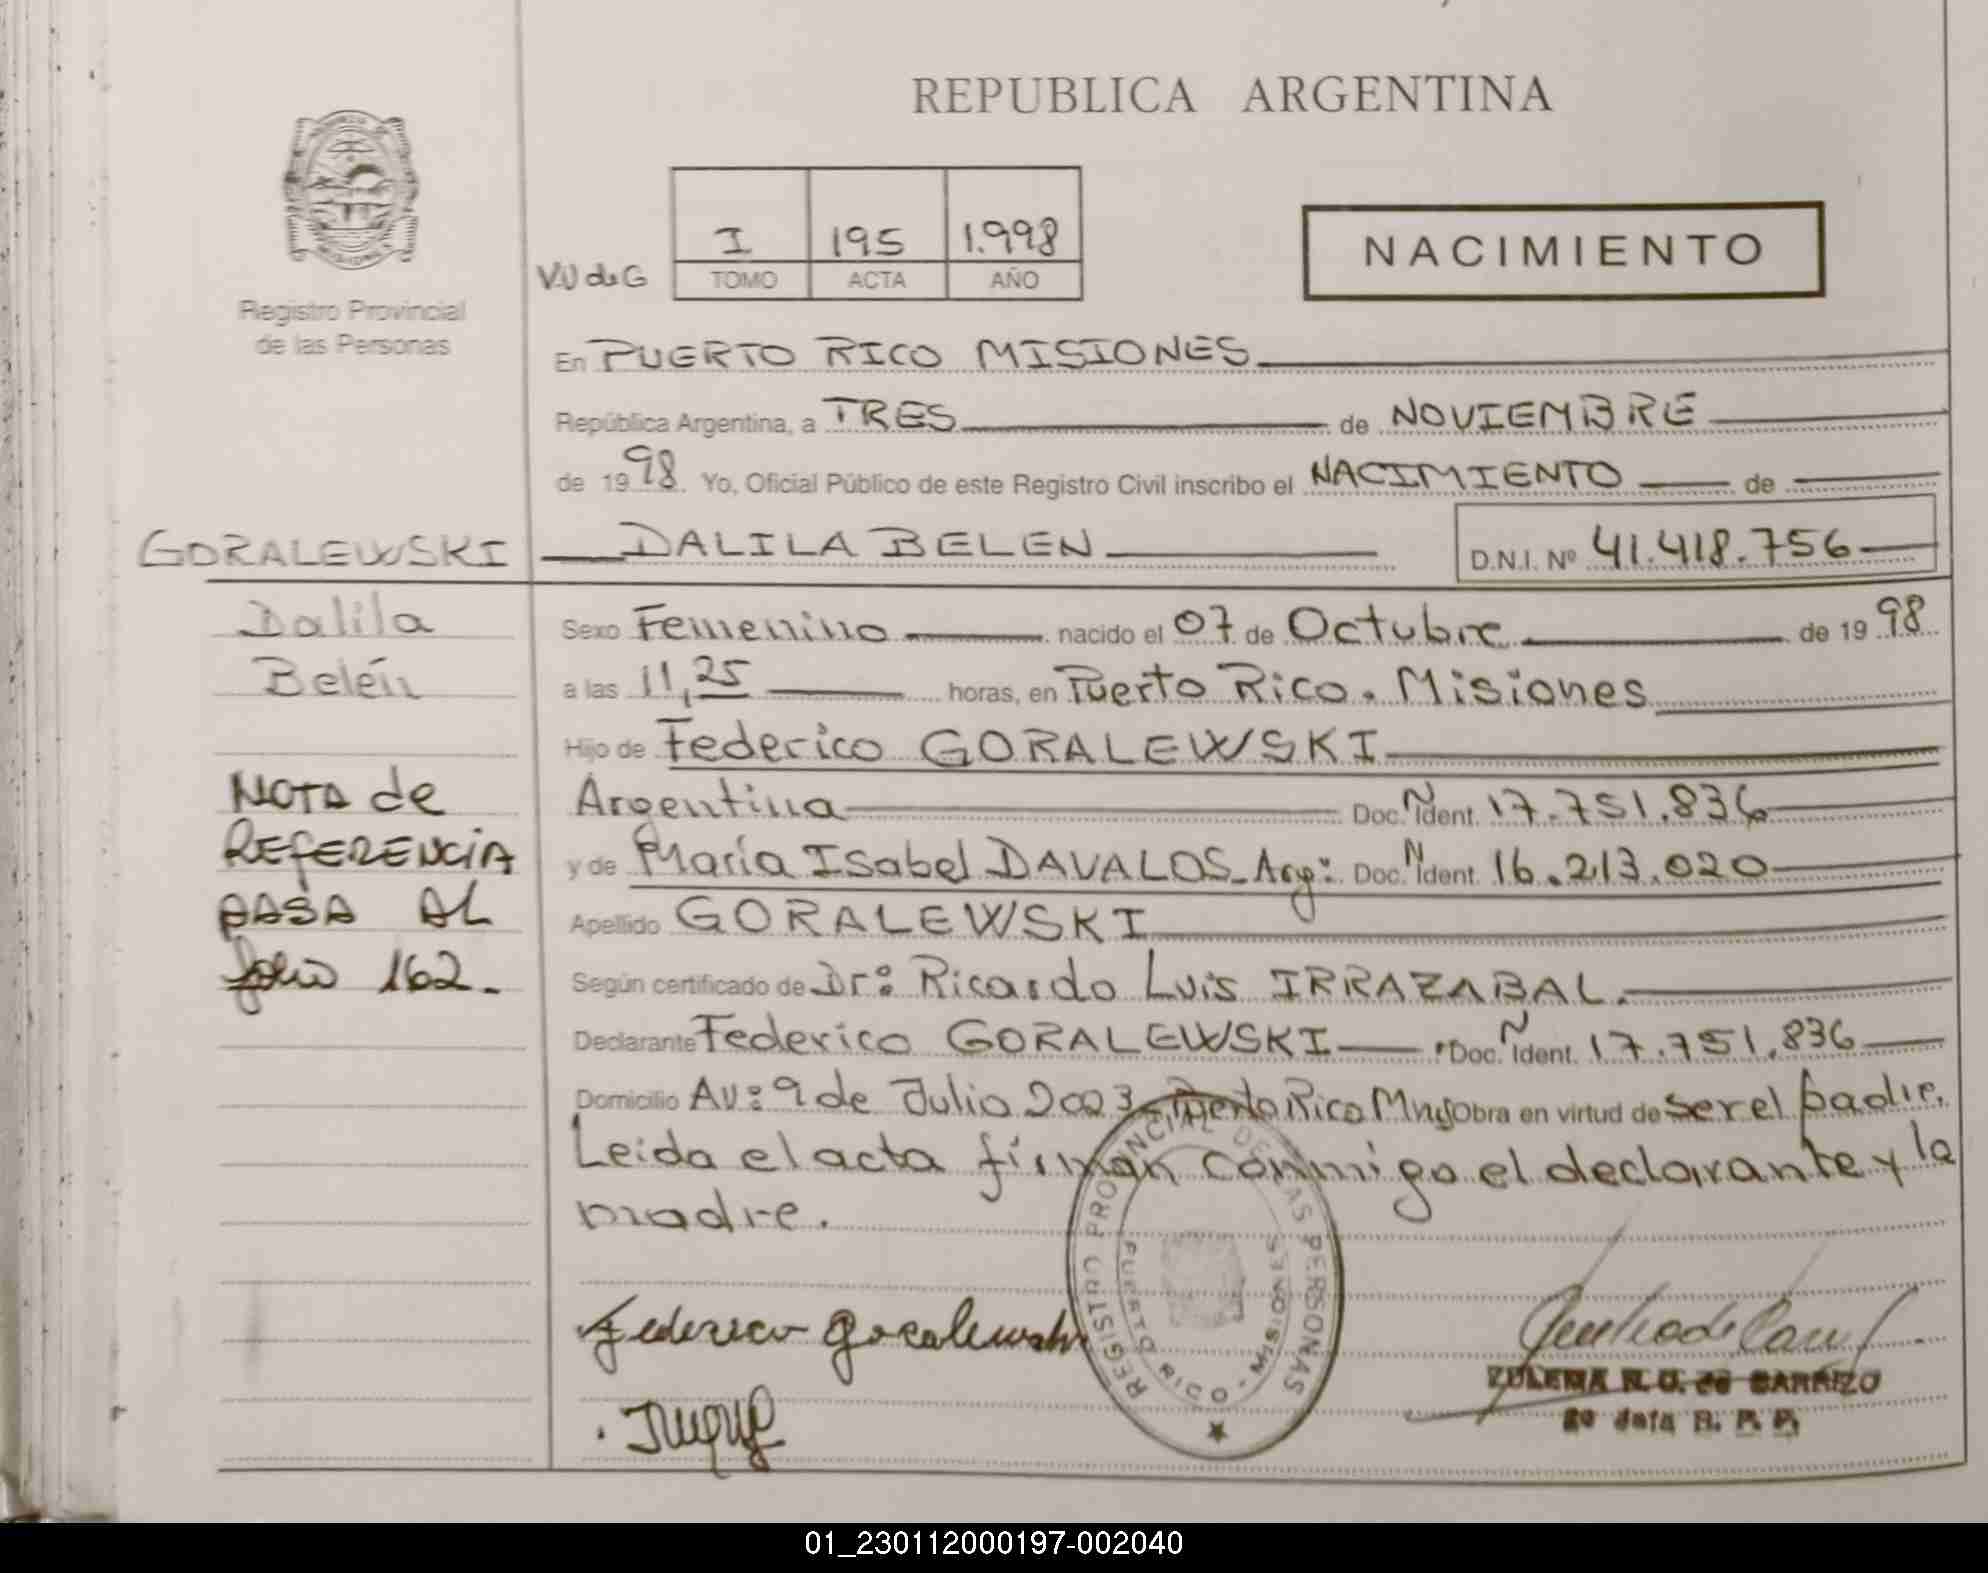 REPUBLICA ARGENTINA
Registro Provincial
de las Personas
V.U de G
I 195 1.998
TOMO ACTA AÑO
NACIMIENTO
En PUERTO RICO MISIONES
República Argentina, a TRES de NOVIEMBRE
de 1998. Yo, Oficial Público de este Registro Civil inscribo el NACIMIENTO de
GORALEWSKI DALILA BELEN D.N.I. Nº 41.418.756
Dalila
Belén
NOTA de
REFERENCIA
PASA AL
folio 162.
Sexo Femenino nacido el 07 de Octubre de 1998
a las 11,25 horas, en Puerto Rico. Misiones
Hijo de Federico GORALEWSKI
Argentina Doc. Ñ Ident. 17.751.836
y de María Isabel DAVALOS_Arg: Doc. N Ident. 16.213.020
Apellido GORALEWSKI
Según certificado de Dr: Ricardo Luis IRRAZABAL.
Declarante Federico GORALEWSKI Doc. Ñ Ident. 17.751.836
Domicilio AV: 9 de Julio 2003 Puerto Rico Mnes Obra en virtud de ser el padre.
Leida el acta firman conmigo el declarante y la
madre.
Federico Goralewski
REGISTRO PROVINCIAL DE LAS PERSONAS
PUERTO RICO - MISIONES
ZULEMA N. G. de BARRIZO
2º Jefa R. P. P.
01_230112000197-002040